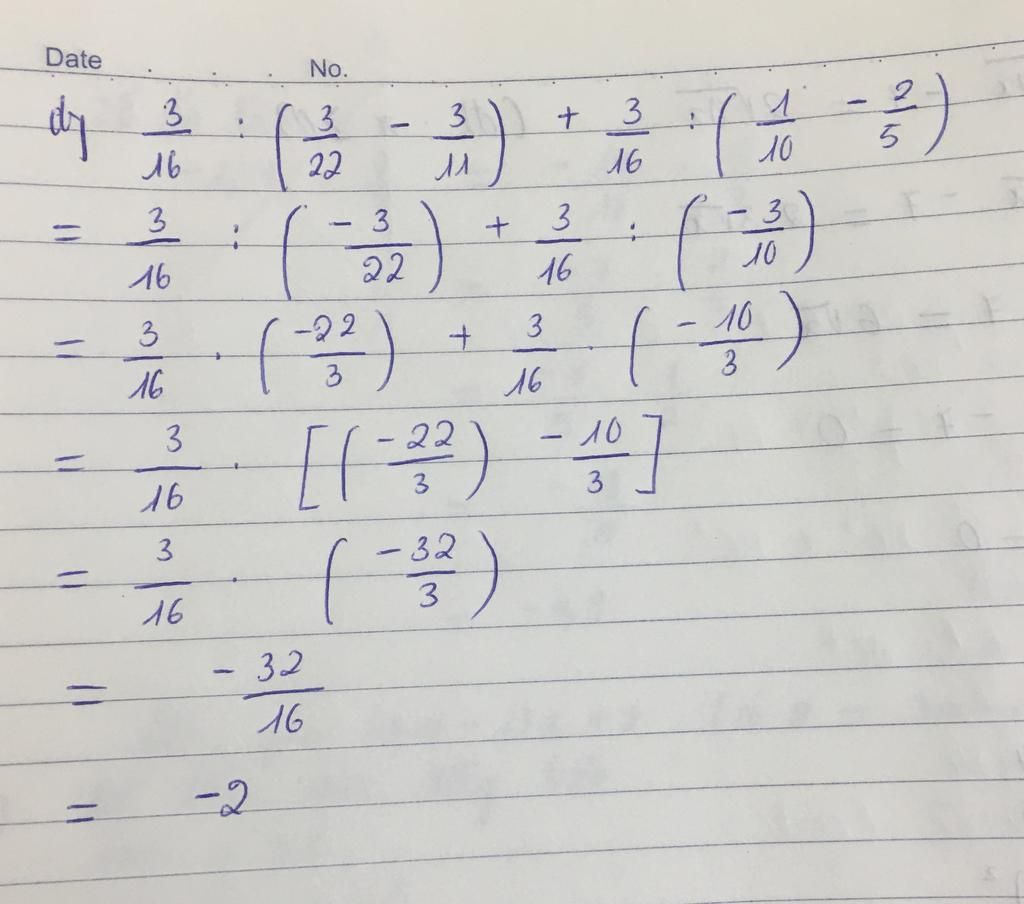 Date No.
d) 3/16 : (3/22 - 3/11) + 3/16 : (1/10 - 2/5)
= 3/16 : (-3/22) + 3/16 : (-3/10)
= 3/16 . (-22/3) + 3/16 . (-10/3)
= 3/16 . [(-22/3) - 10/3]
= 3/16 . (-32/3)
= -32/16
= -2